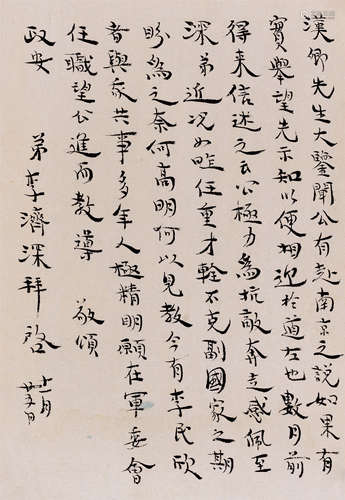 漢卿先生大鑒聞公有赴南京之説如果有
實舉望先示知以便相迎於道左也數月前
得来信述之云公極力爲抗敵奔走感佩至
深弟近況如昨任重才輕不克副國家之期
盼爲之奈何高明何以見教今有李民欣
者與永共事多年人極精明願在軍委會
任職望公進而教導 敬頌
政安
弟李濟深拜啓 十一月
廿五日